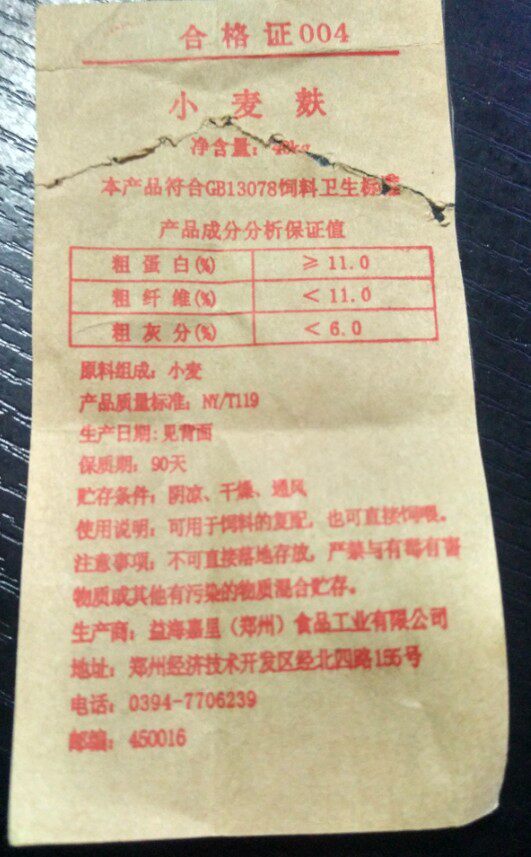 合格证004
小麦麸
净含量：40kg
本产品符合GB13078饲料卫生标准
产品成分分析保证值
粗蛋白(%) ≥11.0
粗纤维(%) <11.0
粗灰分(%) <6.0
原料组成：小麦
产品质量标准：NY/T119
生产日期：见背面
保质期：90天
贮存条件：阴凉、干燥、通风
使用说明：可用于饲料的复配，也可直接饲喂。
注意事项：不可直接落地存放，严禁与有毒有害
物质或其他有污染的物质混合贮存。
生产商：益海嘉里（郑州）食品工业有限公司
地址：郑州经济技术开发区经北四路155号
电话：0394-7706239
邮编：450016